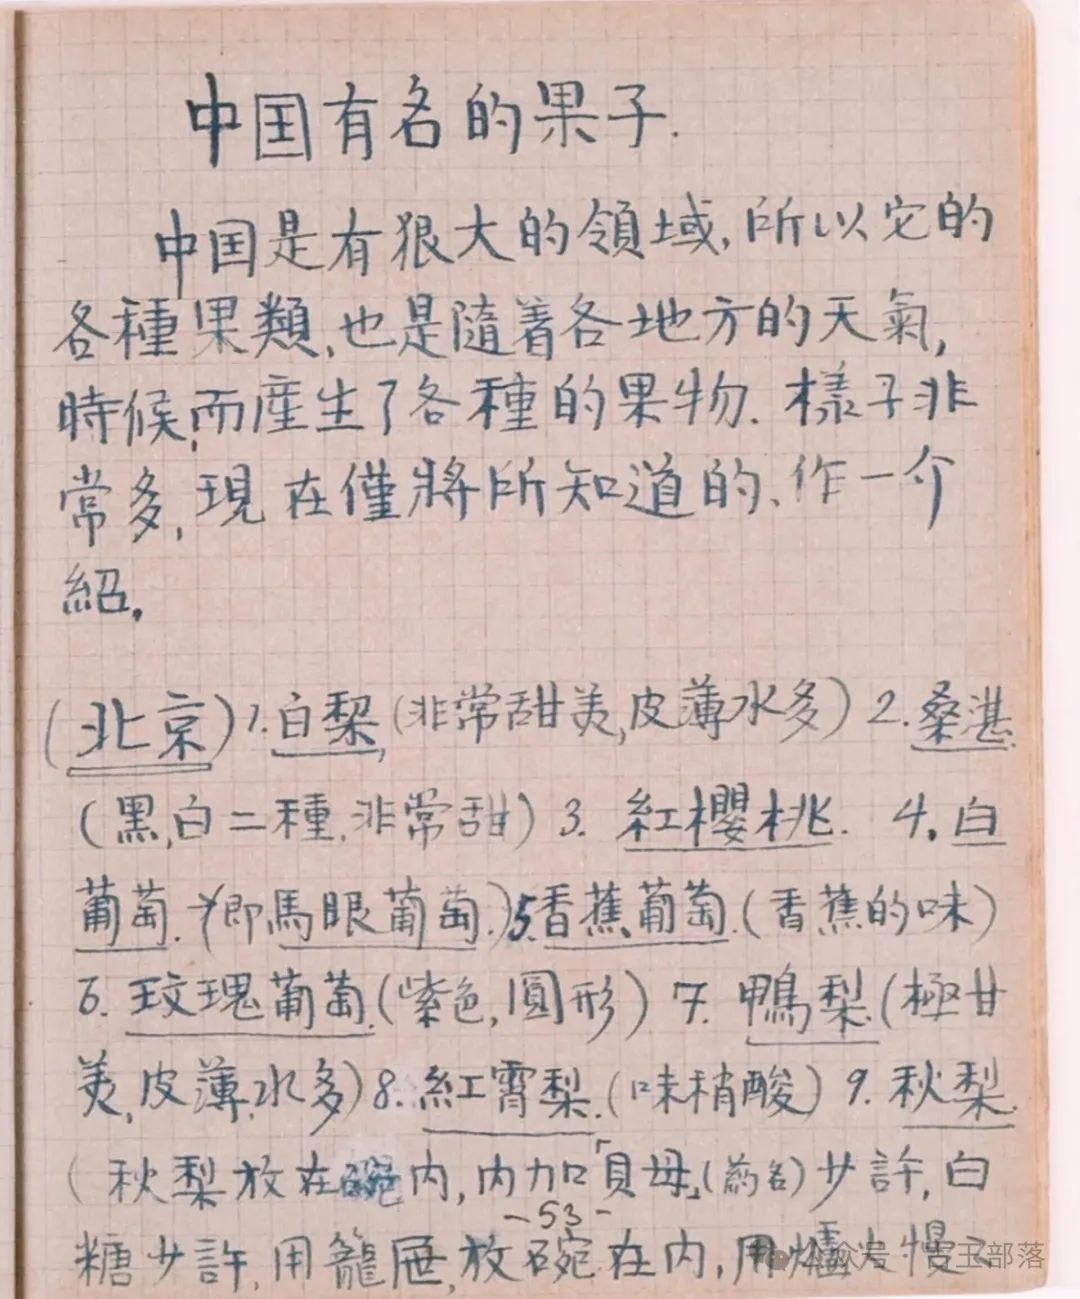 中国有名的果子.
中国是有狠大的領域,所以它的
各種果類,也是隨着各地方的天氣,
時候,而產生了各種的果物.樣子非
常多,現在僅將所知道的、作一个
紹。
(北京)1.白梨,(非常甜美,皮薄水多)2.桑湛.
(黑,白二種,非常甜)3.紅櫻桃. 4.白
葡萄.(即馬眼葡萄.)5.香蕉葡萄.(香蕉的味)
6.玟瑰葡萄.(紫色,圓形)7.鴨梨.(極甘
美,皮薄,水多)8.紅霄梨.(味稍酸)9.秋梨.
(秋梨放在碗内,内加「貝母」(葯名)少許,白
-53-
糖少許,用籠屉,放碗在内,用爐火慢
公众号·古玉部落